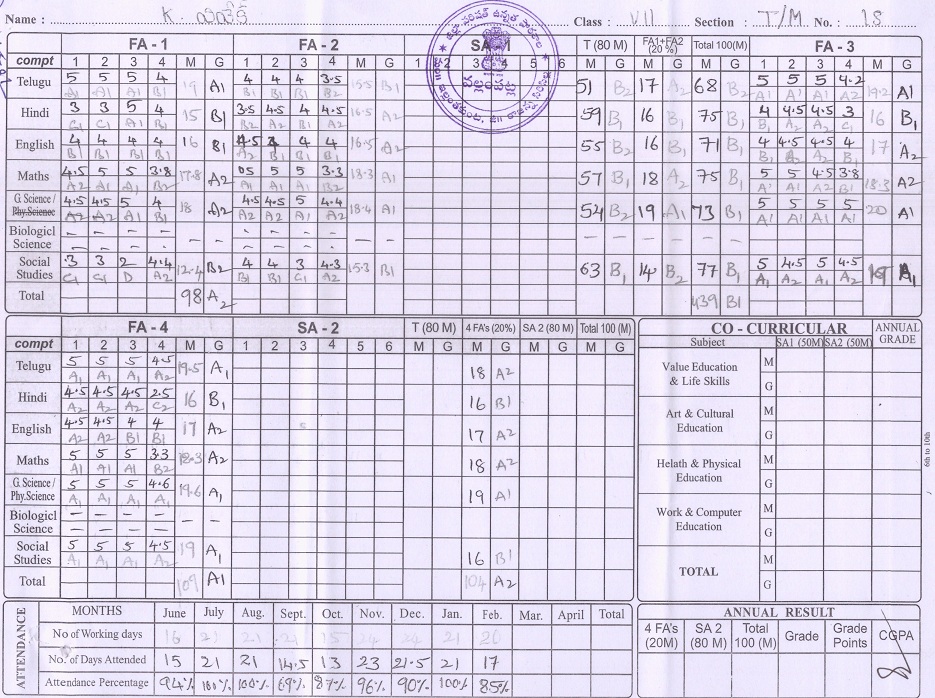 Name : K. వివేక్ Class : VII Section : T/M No. : 18
FA - 1 FA - 2 SA - 1 T (80 M) FA1+FA2 (20 %) Total 100(M) FA - 3
compt 1 2 3 4 M G 1 2 3 4 M G 1 2 3 4 5 6 M G M G M G 1 2 3 4 M G
Telugu 5 5 5 4 19 A1 4 4 4 3.5 15.5 B1 51 B2 17 A2 68 B2 5 5 5 4.2 19.2 A1
A1 A1 A1 B1 B1 B1 B1 B2 A1 A1 A1 A2
Hindi 3 3 5 4 15 B1 3.5 4.5 4 4.5 16.5 A2 59 B1 16 B1 75 B1 4 4.5 4.5 3 16 B1
C1 C1 A1 B1 B2 A2 B1 A2 B1 A2 A2 C1
English 4 4 4 4 16 B1 4.5 4 4 4 16.5 A2 55 B2 16 B1 71 B1 4 4.5 4.5 4 17 A2
B1 B1 B1 B1 A2 B1 B1 B1 B1 A2 A2 B1
Maths 4.5 5 5 3.8 17.8 A2 05 5 5 3.3 18.3 A1 57 B1 18 A2 75 B1 5 5 4.5 3.8 18.3 A2
A2 A1 A1 B2 A1 A1 A1 B2 A1 A1 A2 B1
G. Science / Phy.Science 4.5 4.5 5 4 18 A2 4.5 4.5 5 4.4 18.4 A1 54 B2 19 A1 73 B1 5 5 5 5 20 A1
A2 A2 A1 B1 A2 A2 A1 A2 A1 A1 A1 A1
Biologicl Science
Social Studies 3 3 2 4.4 12.4 B2 4 4 3 4.3 15.3 B1 63 B1 14 B2 77 B1 5 4.5 5 4.5 19 A1
C1 C1 D A2 B1 B1 C1 A2 A1 A2 A1 A2
Total 98 A2 439 B1
FA - 4 SA - 2 T (80 M) 4 FA's (20%) SA 2 (80 M) Total 100 (M)
compt 1 2 3 4 M G 1 2 3 4 5 6 M G M G M G M G
Telugu 5 5 5 4.5 19.5 A1 18 A2
A1 A1 A1 A2
Hindi 4.5 4.5 4.5 2.5 16 B1 16 B1
A2 A2 A2 C2
English 4.5 4.5 4 4 17 A2 17 A2
A2 A2 B1 B1
Maths 5 5 5 3.3 18.3 A2 18 A2
A1 A1 A1 B2
G. Science / Phy.Science 5 5 5 4.6 19.6 A1 19 A1
A1 A1 A1 A1
Biologicl Science
Social Studies 5 5 5 4.5 19 A1 16 B1
A1 A1 A1 A1
Total 109 A1 104 A2
CO - CURRICULAR ANNUAL GRADE
Subject SA1 (50M) SA2 (50M)
Value Education & Life Skills M G
Art & Cultural Education M G
Helath & Physical Education M G
Work & Computer Education M G
TOTAL M G
6th to 10th
ATTENDANCE
MONTHS June July Aug. Sept. Oct. Nov. Dec. Jan. Feb. Mar. April Total
No of Working days 16 21 21 21 15 24 24 21 20
No. of Days Attended 15 21 21 14.5 13 23 21.5 21 17
Attendance Percentage 94% 100% 100% 69% 87% 96% 90% 100% 85%
ANNUAL RESULT
4 FA's (20M) SA 2 (80 M) Total 100 (M) Grade Grade Points CGPA